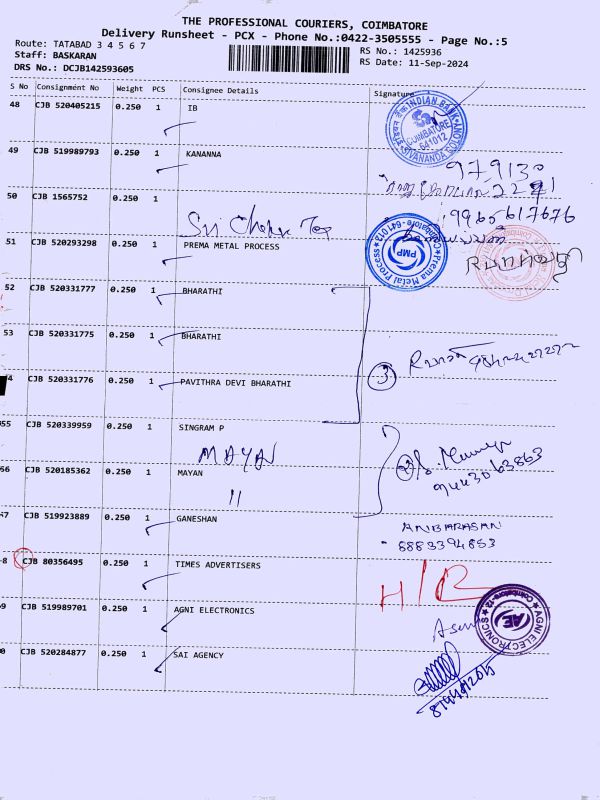 THE PROFESSIONAL COURIERS, COIMBATORE
Delivery Runsheet - PCX - Phone No.:0422-3505555 - Page No.:5
Route: TATABAD 3 4 5 6 7
RS No.: 1425936
Staff: BASKARAN
RS Date: 11-Sep-2024
DRS No.: DCJB142593605
S No Consignment No Weight PCS Consignee Details Signature
48 CJB 520405215 0.250 1 IB
INDIAN BANK
COIMBATORE
641012
SIVANANDA COLONY
49 CJB 519989793 0.250 1 KANANNA
979130
50 CJB 1565752 0.250 1
Sri
9965617676
51 CJB 520293298 0.250 1 PREMA METAL PROCESS
Prema Metal Process
Coimbatore-641012
PMP
52 CJB 520331777 0.250 1 BHARATHI
53 CJB 520331775 0.250 1 BHARATHI
3
4 CJB 520331776 0.250 1 PAVITHRA DEVI BHARATHI
55 CJB 520339959 0.250 1 SINGRAM P
MAYAN
56 CJB 520185362 0.250 1 MAYAN
9443063863
11
57 CJB 519923889 0.250 1 GANESHAN
ANBARASAN
8883394853
8 CJB 80356495 0.250 1 TIMES ADVERTISERS
9 CJB 519989701 0.250 1 AGNI ELECTRONICS
AGNI ELECTRONICS
Coimbatore-12
AE
0 CJB 520284877 0.250 1 SAI AGENCY